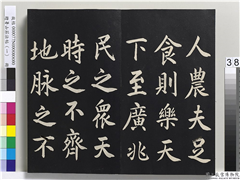 人農夫足
食則樂天
下至廣兆
民之眾天
時之不齊
地脈之不
38